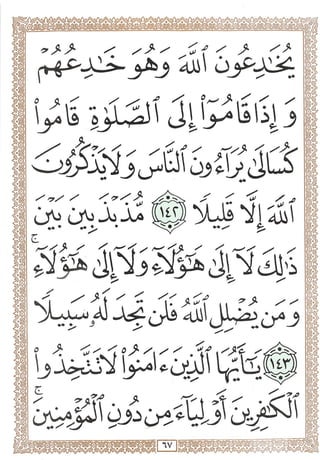 يُخَٰدِعُونَ ٱللَّهَ وَهُوَ خَٰدِعُهُمْ
وَإِذَا قَامُوٓا۟ إِلَى ٱلصَّلَوٰةِ قَامُوا۟
كُسَالَىٰ يُرَآءُونَ ٱلنَّاسَ وَلَا يَذْكُرُونَ
ٱللَّهَ إِلَّا قَلِيلًا ١٤٢ مُّذَبْذَبِينَ بَيْنَ
ذَٰلِكَ لَآ إِلَىٰ هَٰٓؤُلَآءِ وَلَآ إِلَىٰ هَٰٓؤُلَآءِ ۚ
وَمَن يُضْلِلِ ٱللَّهُ فَلَن تَجِدَ لَهُۥ سَبِيلًا
١٤٣ يَٰٓأَيُّهَا ٱلَّذِينَ ءَامَنُوا۟ لَا تَتَّخِذُوا۟
ٱلْكَٰفِرِينَ أَوْلِيَآءَ مِن دُونِ ٱلْمُؤْمِنِينَ ۚ
٦٧